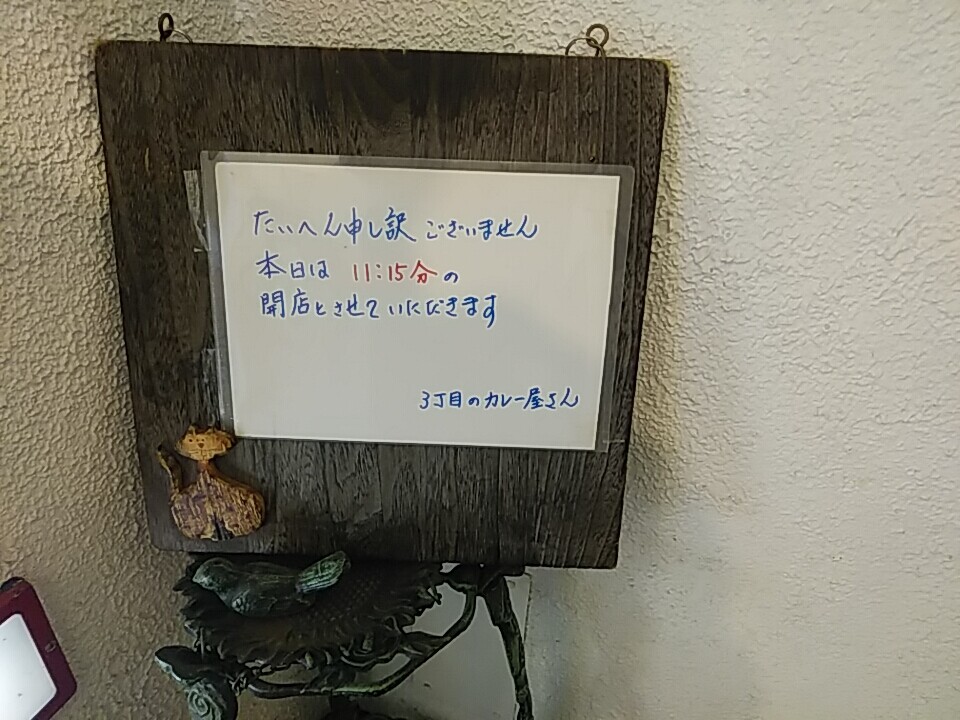 たいへん申し訳ございません
本日は 11:15分の
開店とさせていただきます
3丁目のカレー屋さん